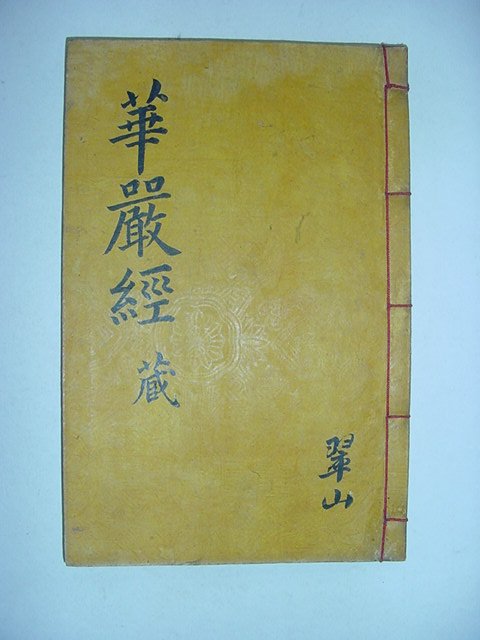 華嚴經 藏
翠山